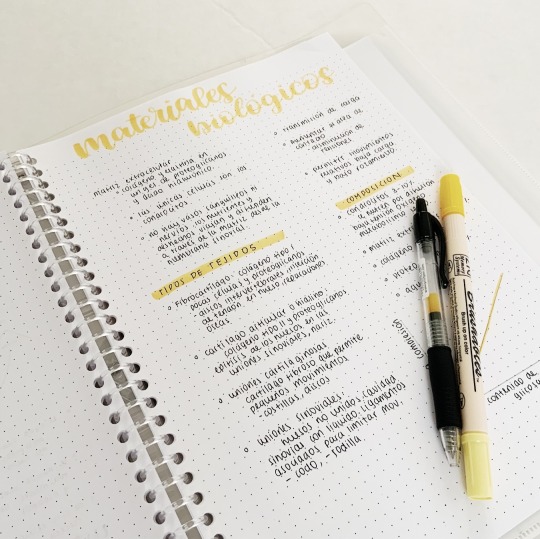 materiales
biológicos
matriz extracelular
colágeno y elastina en
un gel de proteoglicanos
y ácido hialurónico.
las únicas células son los
condrocitos
no hay vasos sanguíneos ni
nervios. los nutrientes y
deshechos viajan y difunden
a través de la matriz desde la
membrana sinovial.
TIPOS DE TEJIDOS
Fibrocartílago: colágeno tipo I
pocas células y proteoglicanos
discos intervertebrales inserción
de tendón en hueso ligaciones
óseas
cartílago articular o hialino
colágeno tipo II y proteoglicanos.
epífisis de los huesos en las
uniones sinoviales, nariz.
uniones cartilaginosas
cartílago fibroso que permite
pequeños movimientos
costillas, discos
uniones sinoviales:
huesos no unidos, cavidad
sinovial con líquido. ligamentos
asociados para limitar mov.
- codo, - rodilla
transmisión de carga
aumentar el área de
contacto
- disminución de
tensiones
permitir movimientos
relativos bajo carga
y bajo rozamiento
COMPOSICIÓN
condrocitos 3-10%
se nutren por difusión
baja tensión oxígeno
metabolismo
matriz extr
colágeno
proteo
agua
contenido de
glicosa